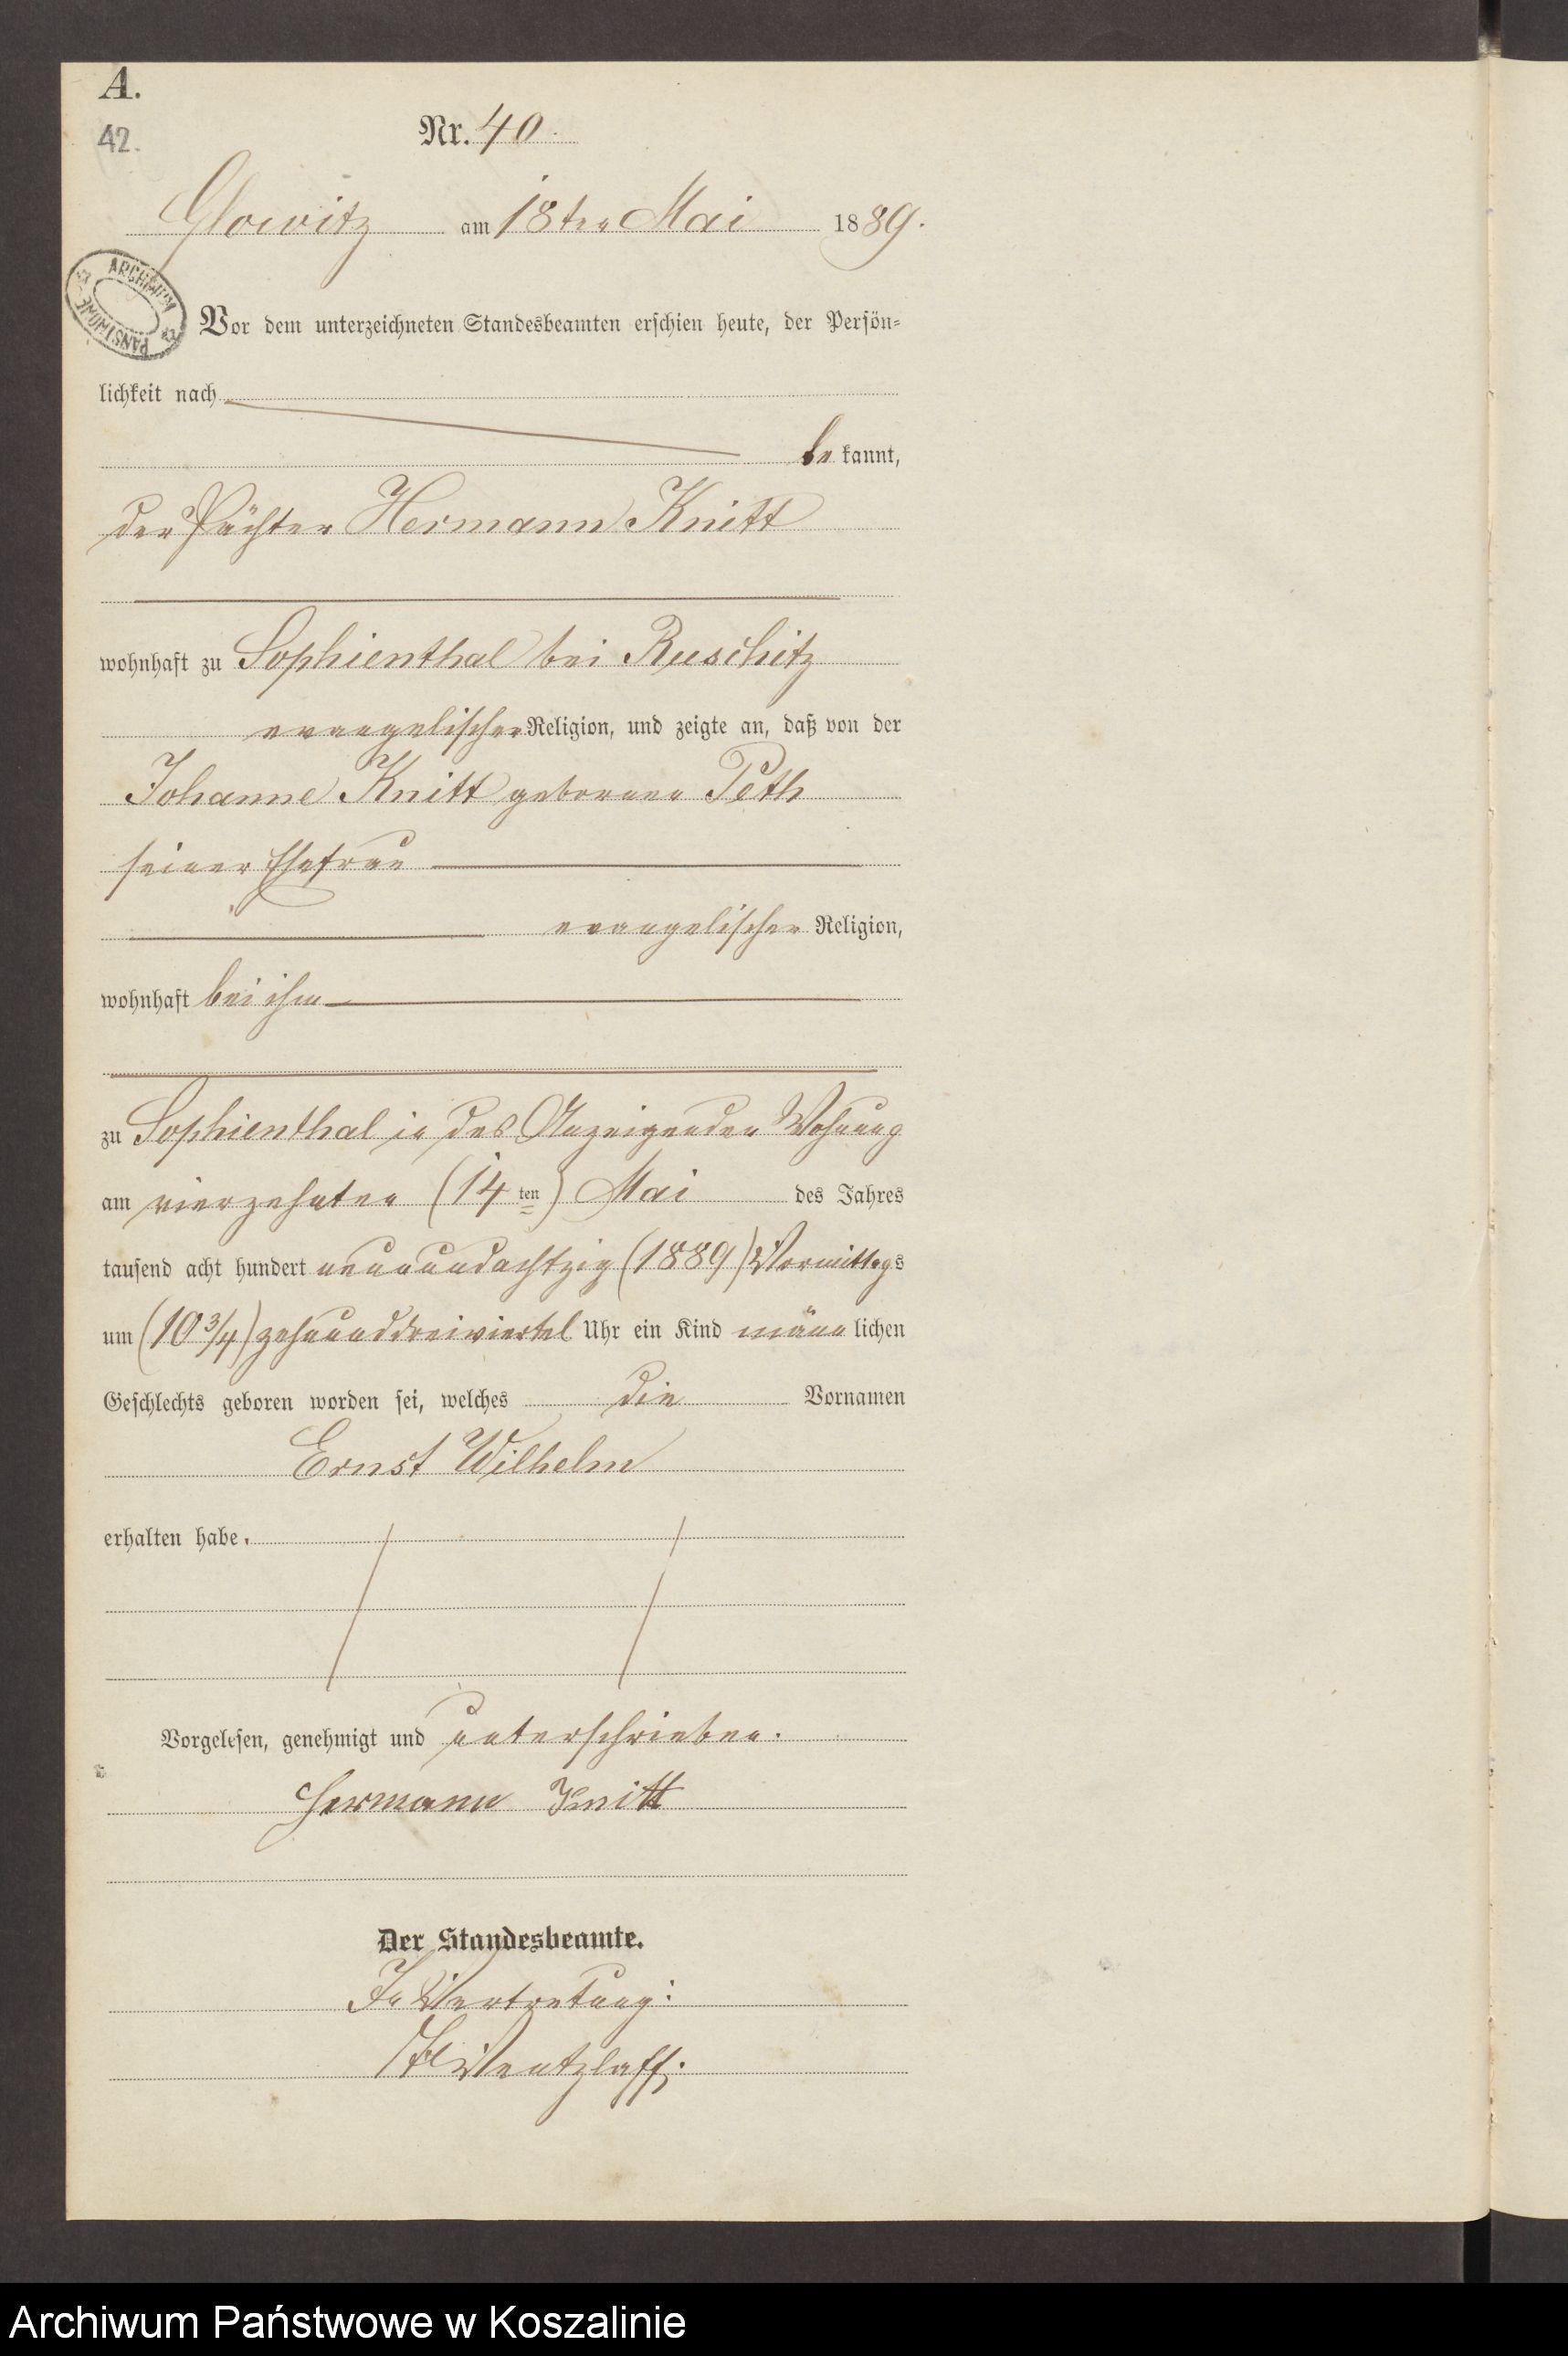 A.
42.
Nr. 40.
Glowitz am 18ten Mai 1889.
ARCHIWUM PAŃSTWOWE
Vor dem unterzeichneten Standesbeamten erschien heute, der Persön=
lichkeit nach
be kannt,
der Pächter Hermann Knitt
wohnhaft zu Sophienthal bei Ruschitz
evangelischer Religion, und zeigte an, daß von der
Johanne Knitt geborenen Peth
seiner Ehefrau
evangelischer Religion,
wohnhaft bei ihm
zu Sophienthal in des Anzeigenden Wohnung
am vierzehnten (14ten) Mai des Jahres
tausend acht hundert neunundachtzig (1889) Vormittags
um (10 3/4) zehnunddreiviertel Uhr ein Kind männ lichen
Geschlechts geboren worden sei, welches die Vornamen
Ernst Wilhelm
erhalten habe.
Vorgelesen, genehmigt und unterschrieben.
Hermann Knitt
Der Standesbeamte.
In Vertretung:
Wentzlaff.
Archiwum Państwowe w Koszalinie